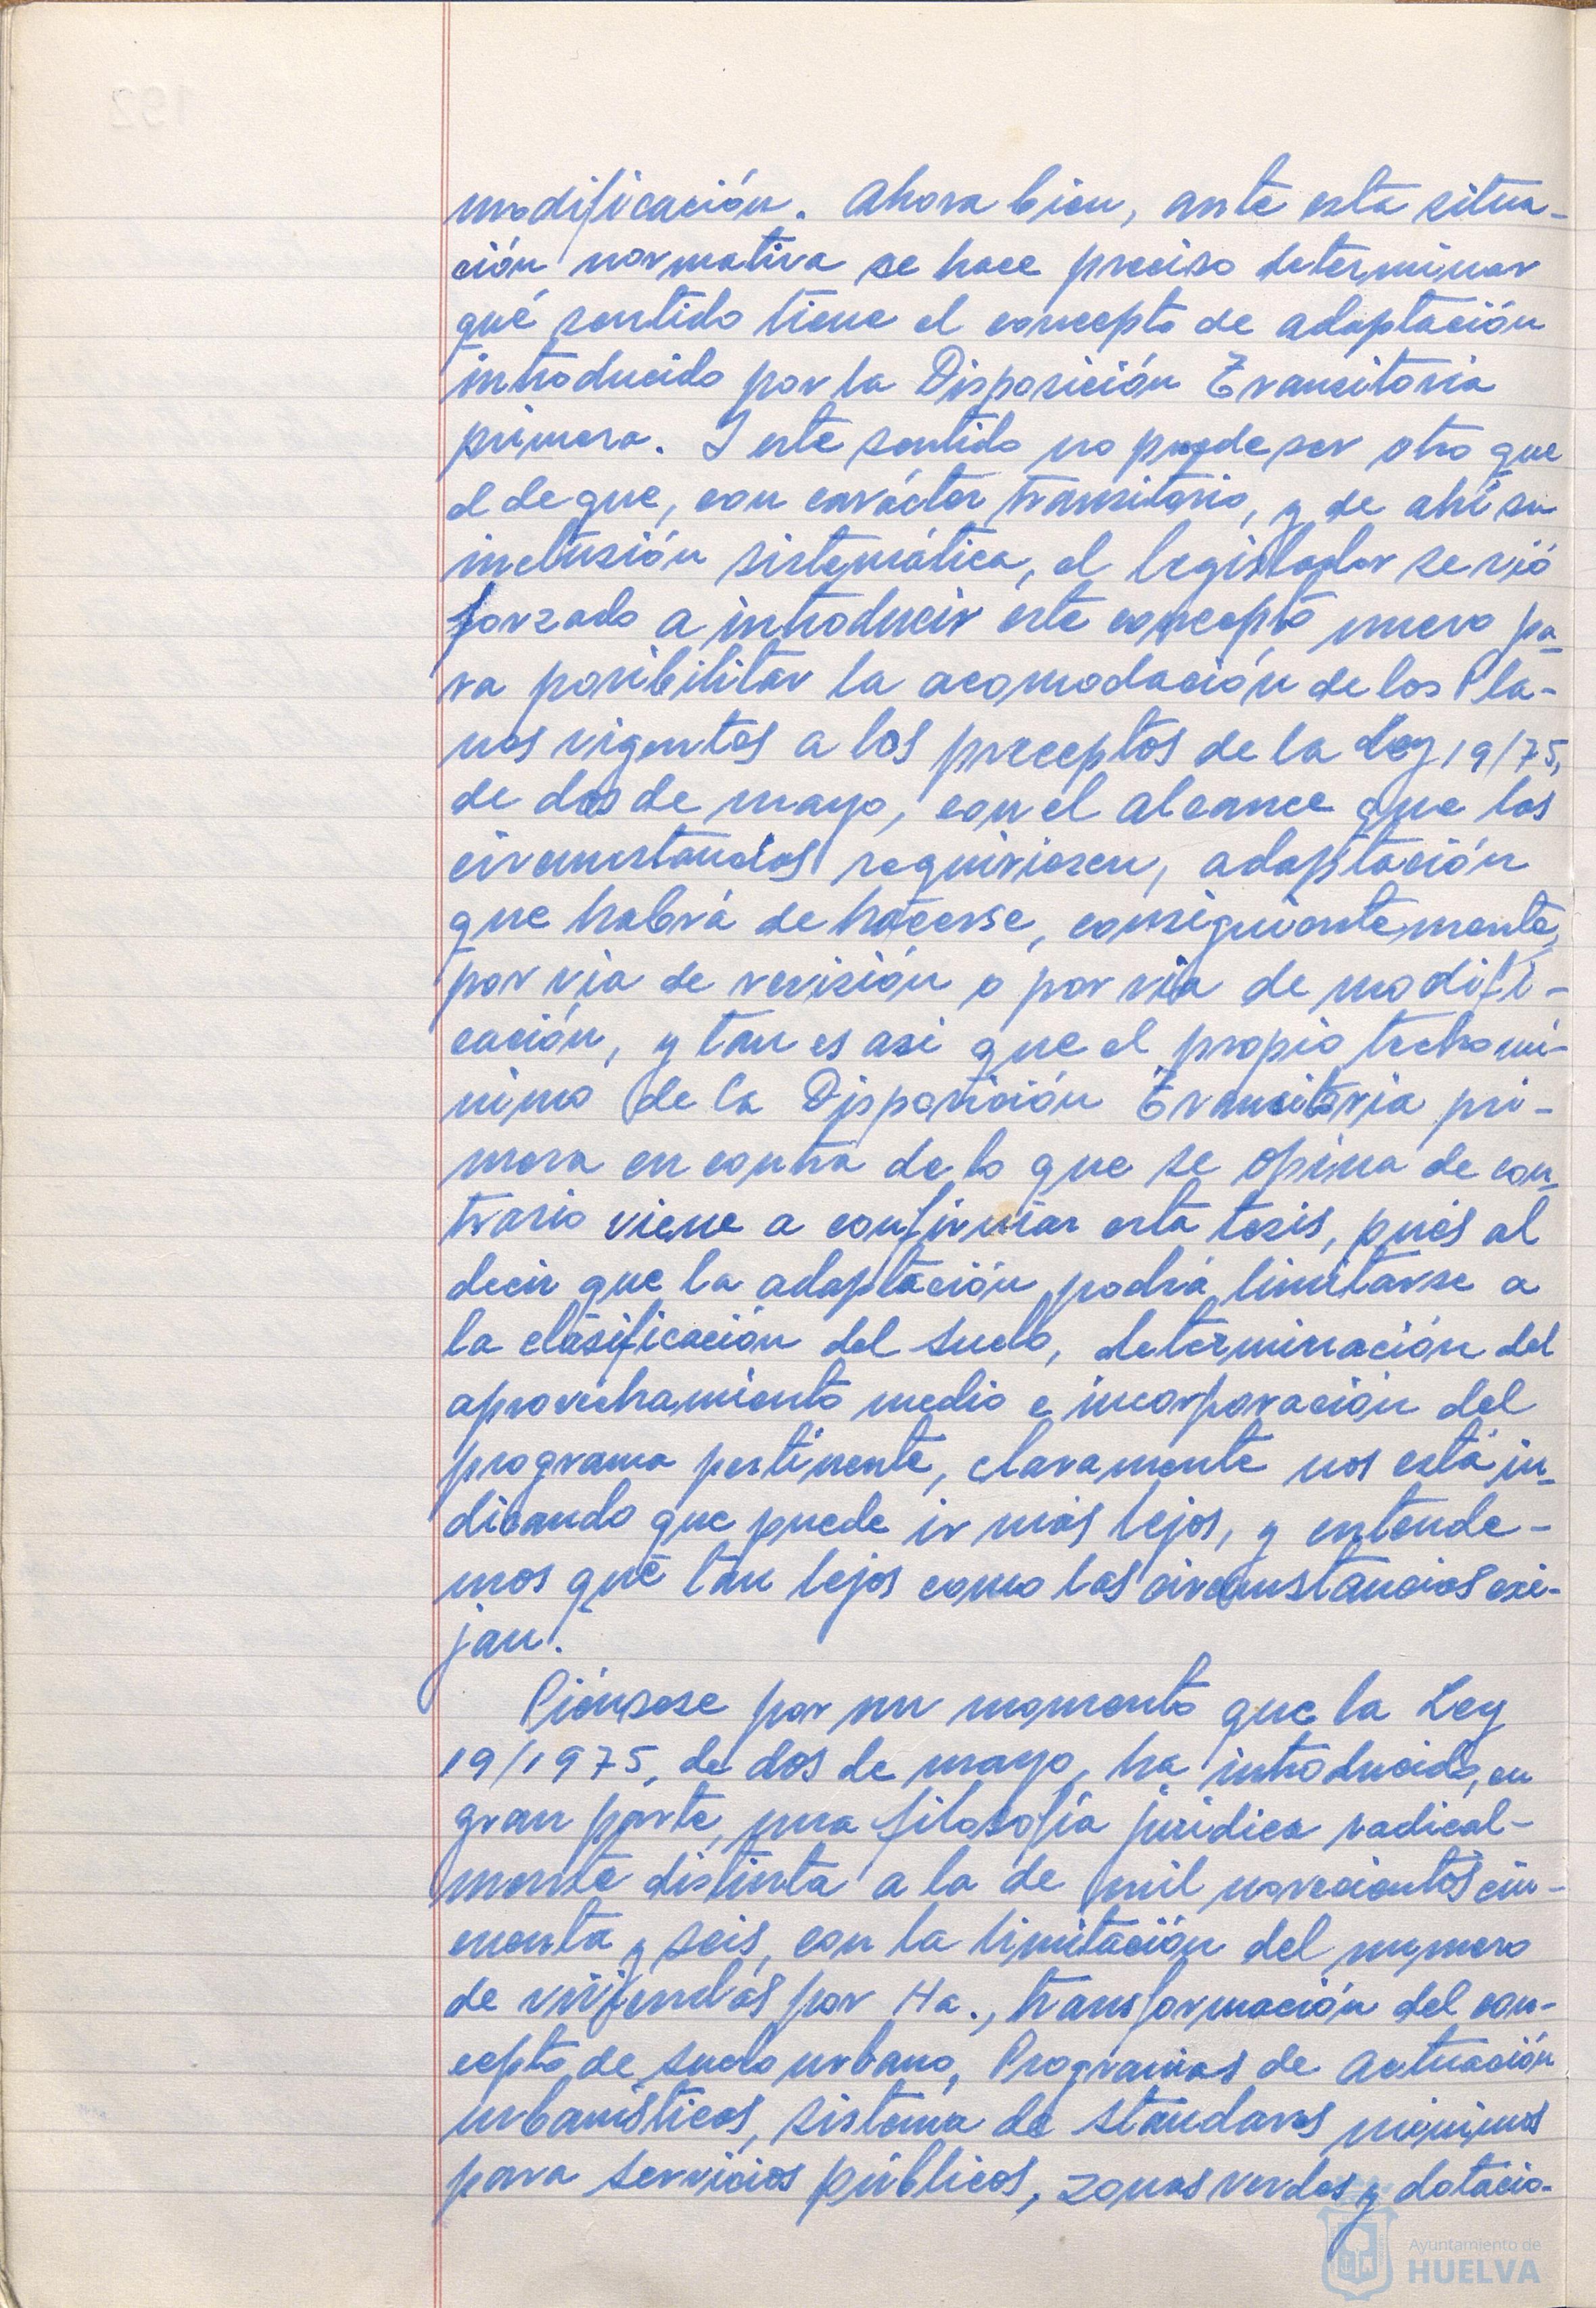 modificación. Ahora bien, ante esta situa-
ción normativa se hace preciso determinar
qué sentido tiene el concepto de adaptación
introducido por la Disposición Transitoria
primera. I este sentido no puede ser otro que
el de que, con carácter transitorio, y de ahí su
inclusión sistemática, el legislador se vió
forzado a introducir este concepto nuevo pa-
ra posibilitar la acomodación de los Pla-
nes vigentes a los preceptos de la Ley 19/75,
de dos de mayo, con el alcance que las
circunstancias requiriesen, adaptación
que habrá de hacerse, consiguientemente,
por via de revisión o por via de modifi-
cación, y tan es asi que el propio techo mí-
nimo de la Disposición Transitoria pri-
mera en contra de lo que se opina de con-
trario viene a confirmar esta tesis, pués al
decir que la adaptación podrá limitarse a
la clasificación del suelo, determinación del
aprovechamiento medio e incorporación del
programa pertinente, claramente nos está in-
dicando que puede ir más lejos, y entende-
mos que tan lejos como las circunstancias exi-
jan.
Piénsese por un momento que la Ley
19/1975, de dos de mayo, ha introducido, en
gran parte, una filosofía jurídica radical-
mente distinta a la de mil novecientos cin-
cuenta y seis, con la limitación del numero
de viviendas por Ha., transformación del con-
cepto de suelo urbano, Programas de Actuación
urbanísticos, sistema de standares mínimos
para servicios públicos, zonas verdes y dotacio-
Ayuntamiento de
HUELVA
192